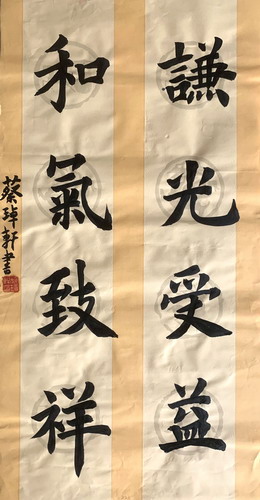 謙光受益
和氣致祥
蔡琸軒書